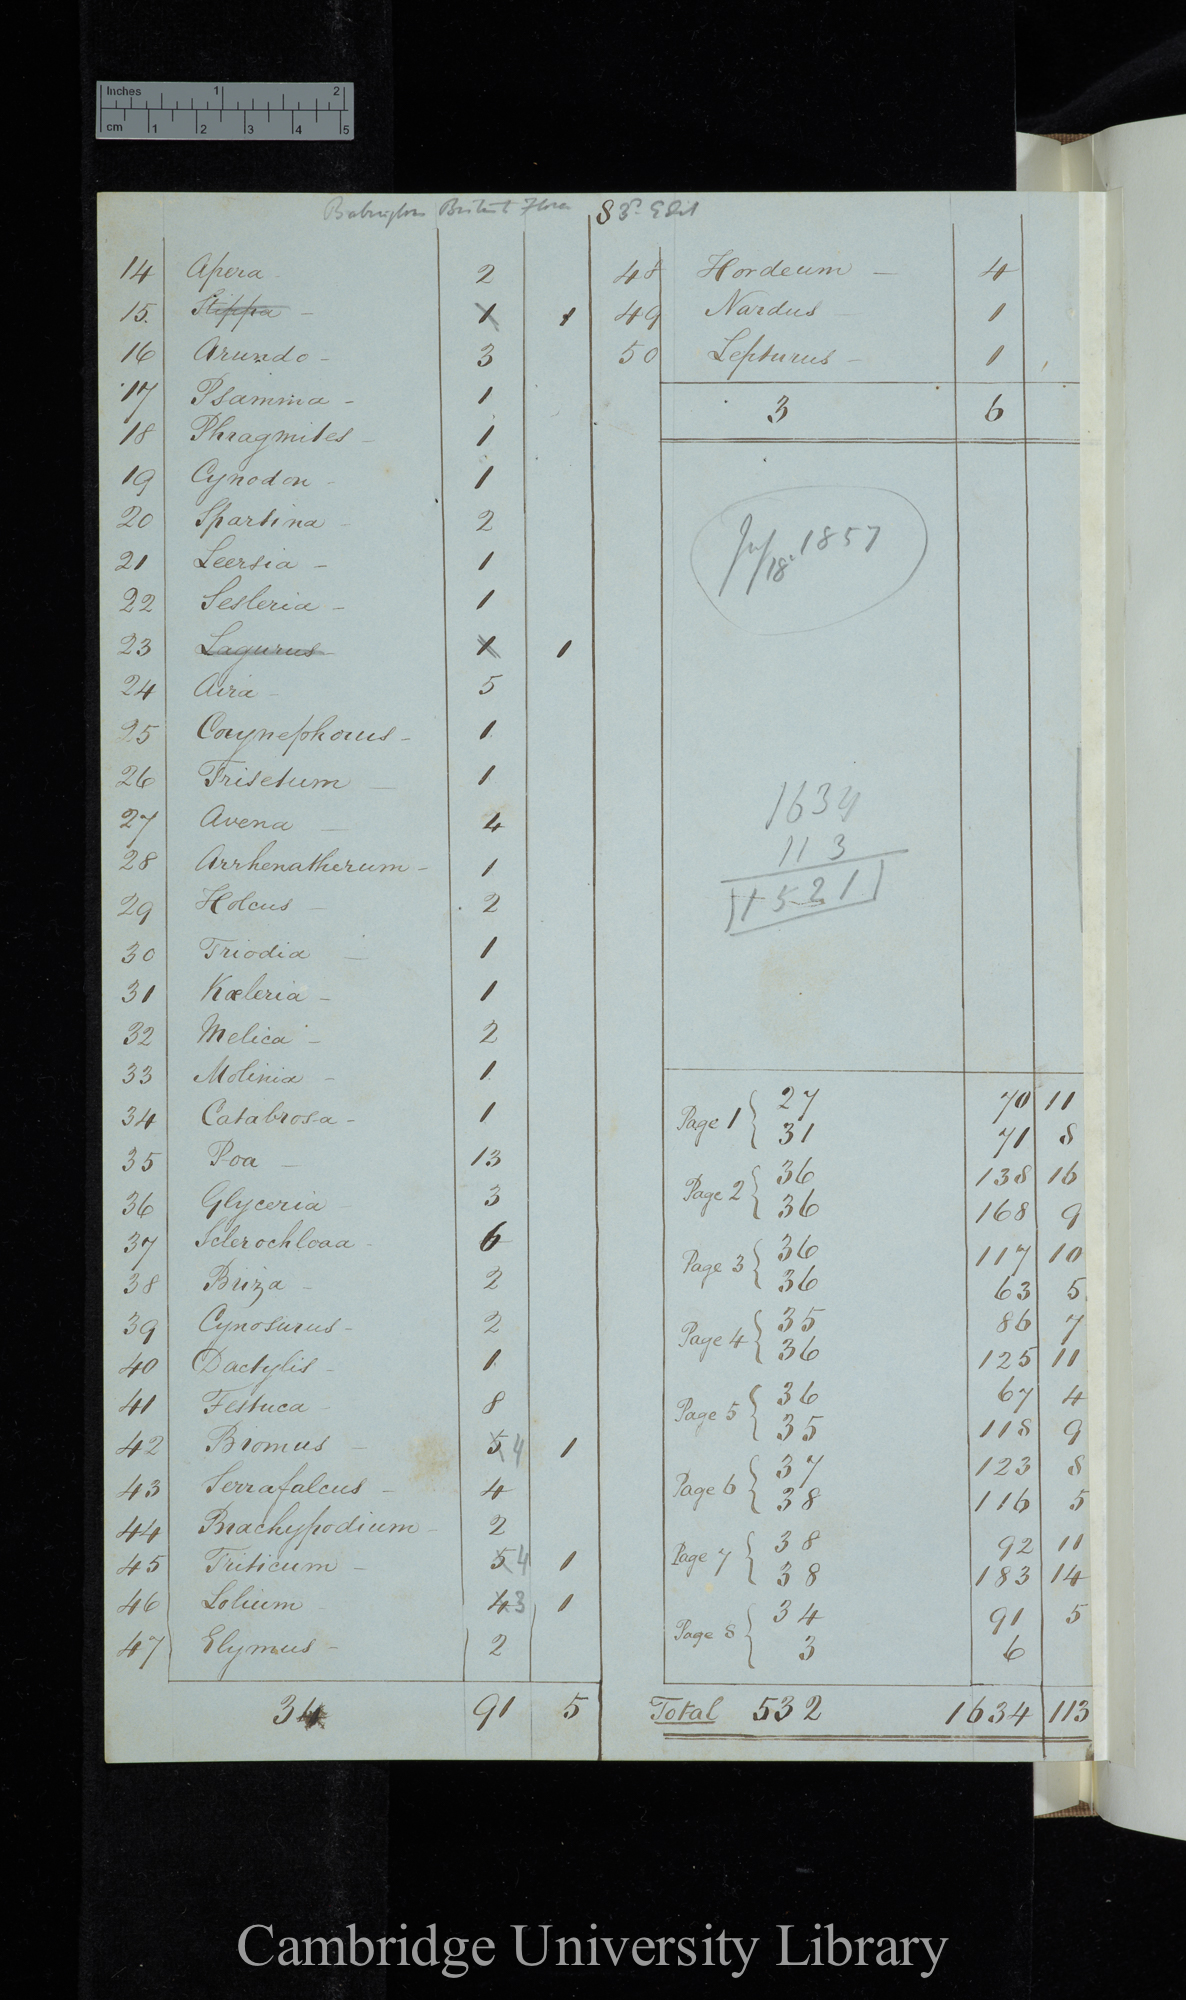 Inches 1 2
cm 1 2 3 4 5
Babington British Flora 8 3d Edit
14 Apera - 2
15. Stippa - 1 1
16 Arundo - 3
17 Psamma - 1
18 Phragmites - 1
19 Cynodon - 1
20 Spartina - 2
21 Leersia - 1
22 Sesleria - 1
23 Lagurus - 1 1
24 Aira - 5
25 Corynephorus - 1
26 Trisetum - 1
27 Avena - 4
28 Arrhenatherum - 1
29 Holcus - 2
30 Triodia - 1
31 Kœleria - 1
32 Melica - 2
33 Molinia - 1
34 Catabrosa - 1
35 Poa - 13
36 Glyceria - 3
37 Sclerochloaa - 6
38 Briza - 2
39 Cynosurus - 2
40 Dactylis - 1
41 Festuca - 8
42 Bromus - 5 4 1
43 Serrafalcus - 4
44 Brachypodium - 2
45 Triticum - 5 4 1
46 Lolium - 4 3 1
47 Elymus - 2
34 91 5
48 Hordeum - 4
49 Nardus - 1
50 Lepturus - 1
3 6
18 1857
1634
113
1521
Page 1 { 27 70 11
31 71 8
Page 2 { 36 138 16
36 168 9
Page 3 { 36 117 10
36 63 5
Page 4 { 35 86 7
36 125 11
Page 5 { 36 67 4
35 118 9
Page 6 { 37 123 8
38 116 5
Page 7 { 38 92 11
38 183 14
Page 8 { 34 91 5
3 6
Total 532 1634 113
Cambridge University Library